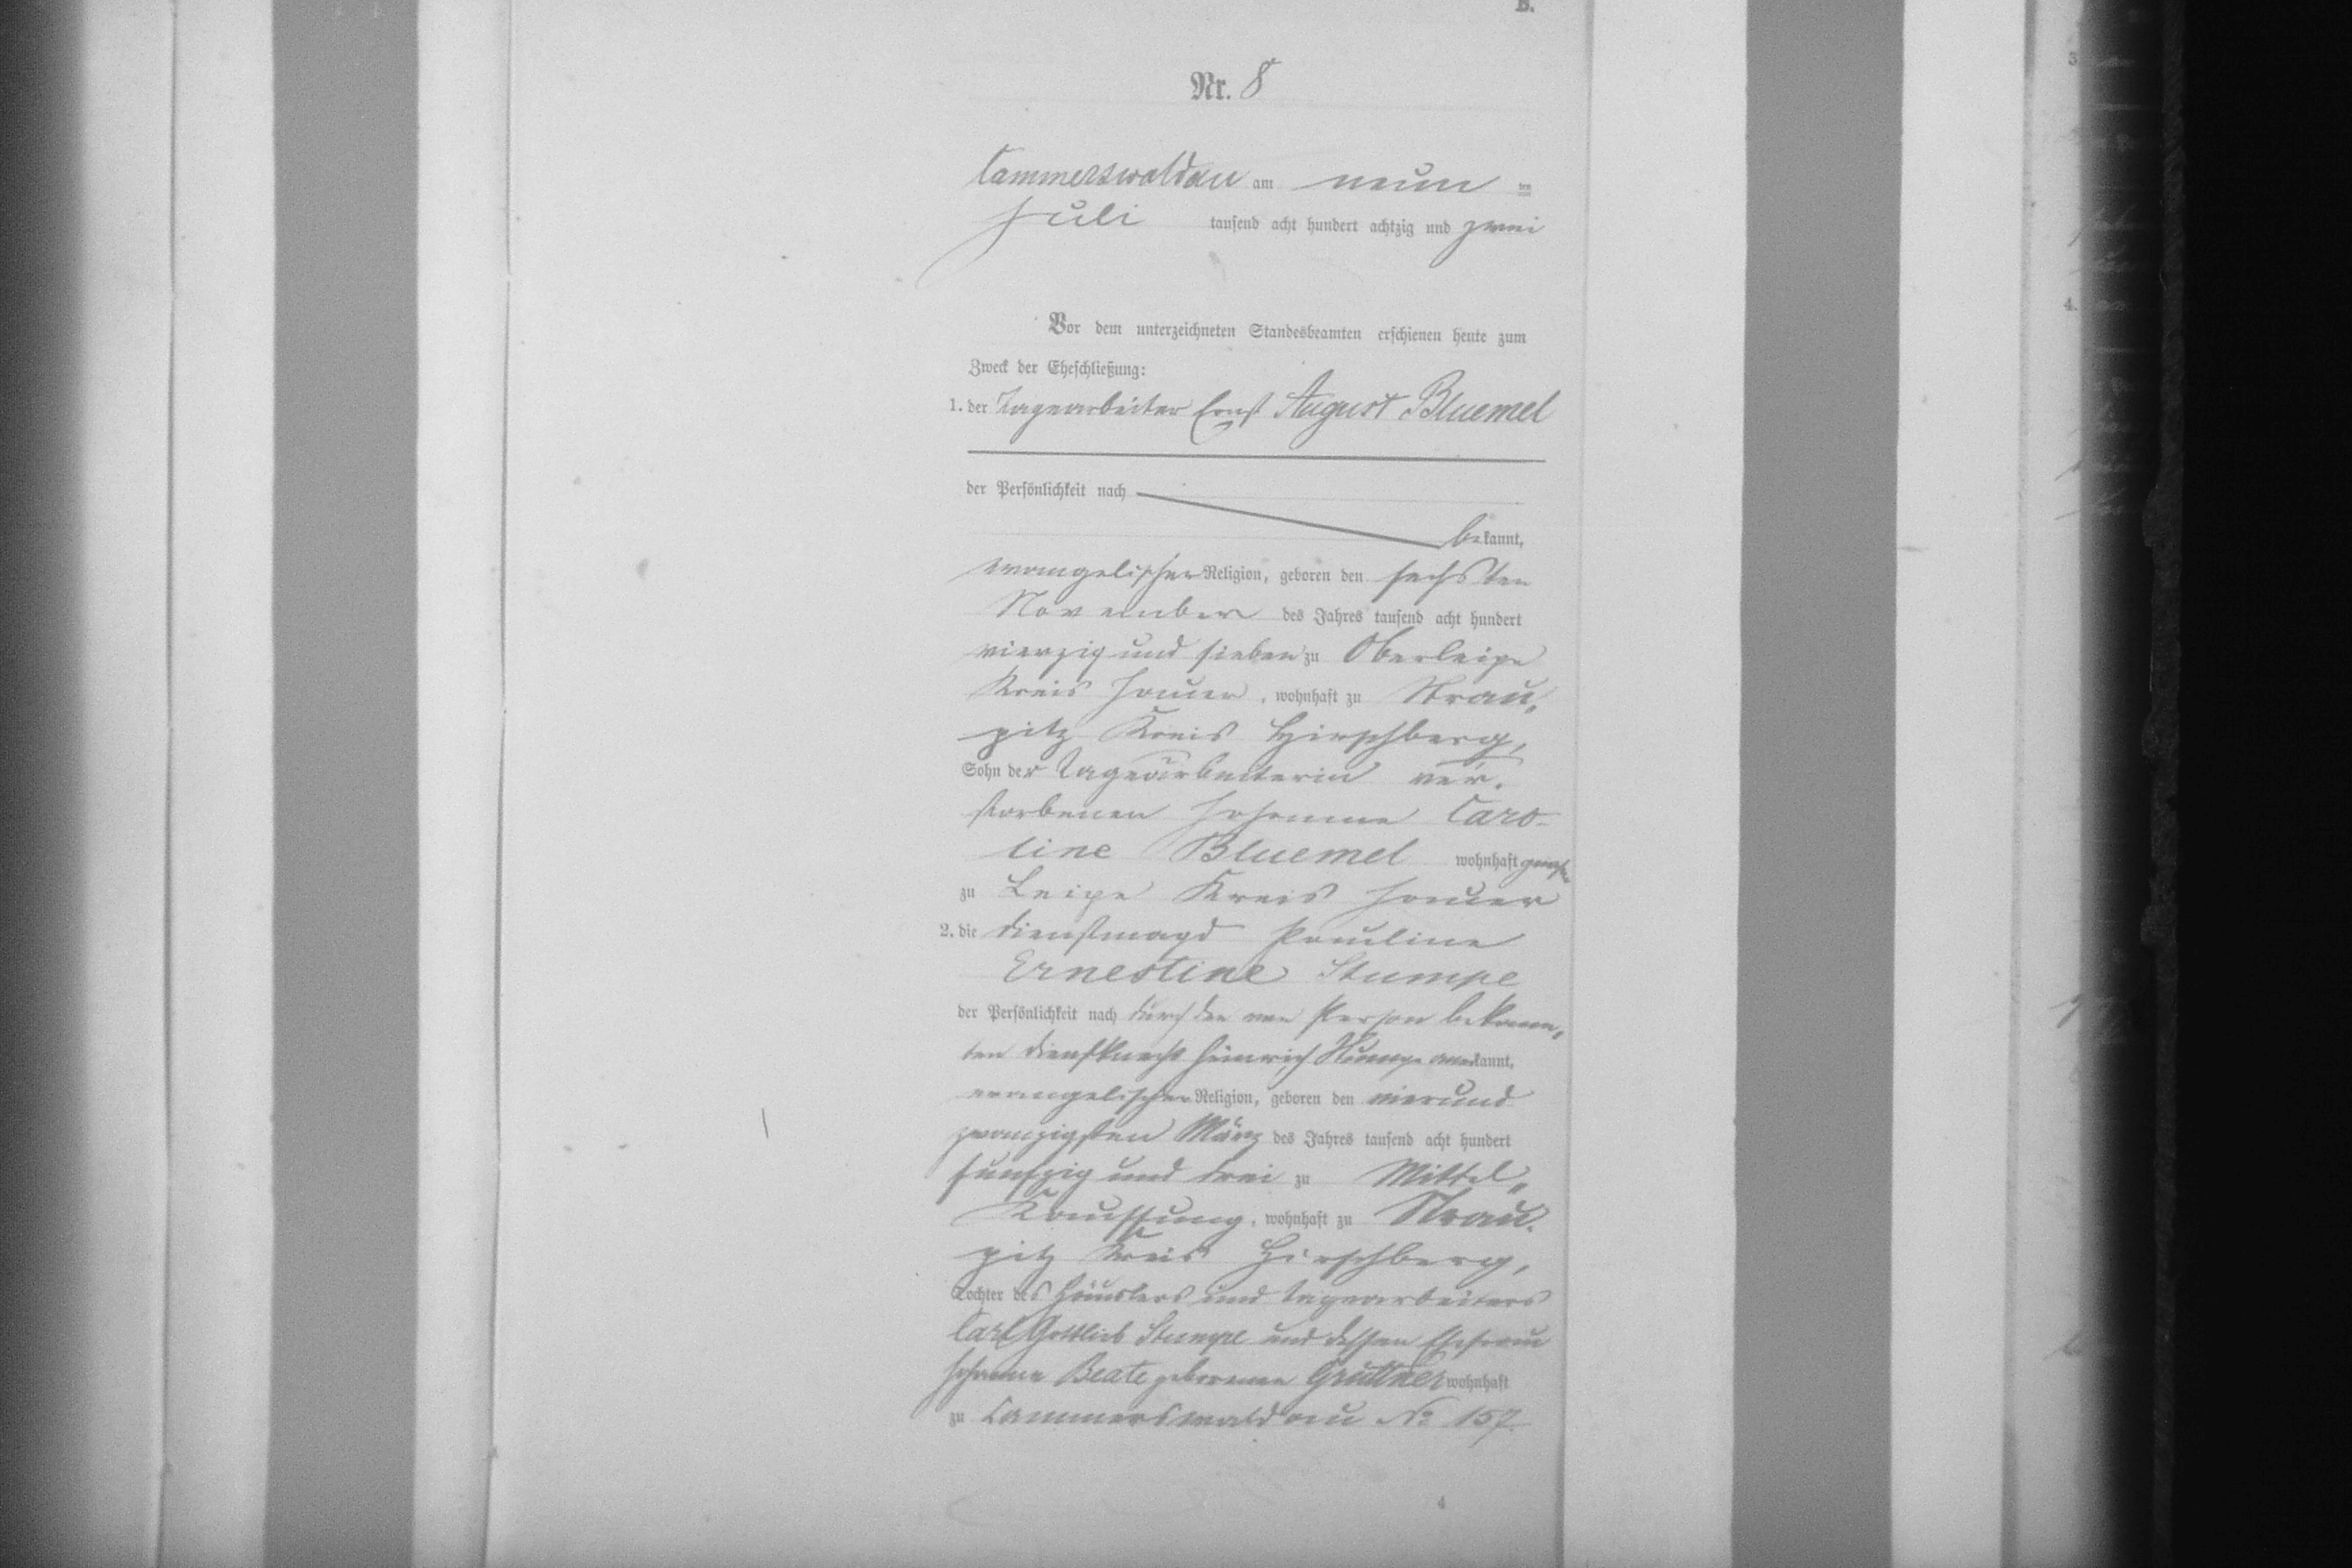 B.
Nr. 8
Cammerswaldau am neun ten
Juli tausend acht hundert achtzig und zwei
Vor dem unterzeichneten Standesbeamten erschienen heute zum
Zweck der Eheschließung:
1. der Tagearbeiter Ernst August Bluemel
der Persönlichkeit nach
bekannt,
evangelischer Religion, geboren den sechsten
November des Jahres tausend acht hundert
vierzig und sieben zu Oberleipe
Kreis Jauer, wohnhaft zu Strau„
pitz Kreis Hirschberg,
Sohn der Tagearbeiterin ver„
storbenen Johanne Caro-
line Bluemel wohnhaft gewesen
zu Leipe Kreis Jauer
2. die Dienstmagd Pauline
Ernestine Stumpe
der Persönlichkeit nach durch den von Person bekann„
ten Dienstknecht Heinrich Stumpe anerkannt,
evangelischer Religion, geboren den vierund
zwanzigsten März des Jahres tausend acht hundert
funfzig und drei zu Mittel„
Kauffung, wohnhaft zu Strau„
pitz Kreis Hirschberg,
Tochter des Häuslers und Tagearbeiters
Carl Gottlieb Stumpe und dessen Ehefrau
Johanne Beate geborenen Grüttner wohnhaft
zu Cammerswaldau No 157.
4
3
4.